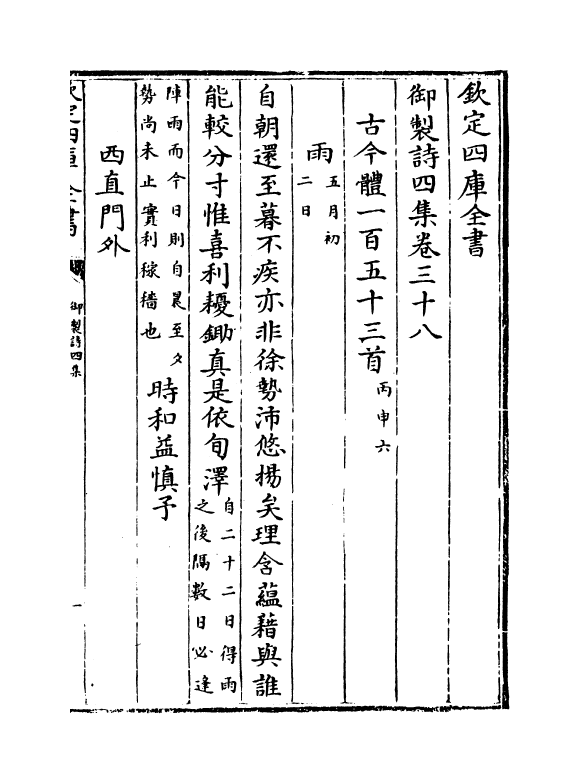 欽定四庫全書
御製詩四集卷三十八
古今體一百五十三首丙申六
雨五月初二日
自朝還至暮不疾亦非徐勢沛悠揚矣理含蘊藉與誰
能較分寸惟喜利耰鋤真是依旬澤自二十二日得雨之後隔數日必逢
陣雨而今日則自晨至夕勢尚未止實利稼穡也時和益慎予
西直門外
欽定四庫全書
御製詩四集
一